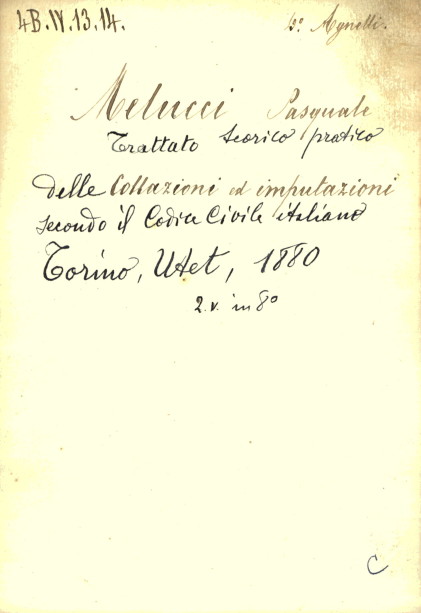 4B.IV.13.14.
to: Agnelli.
Melucci Pasquale
Trattato teorico pratico
delle Collazioni ed imputazioni
secondo il Codice Civile italiano
Torino, Utet, 1880
2. v. in 8º
C